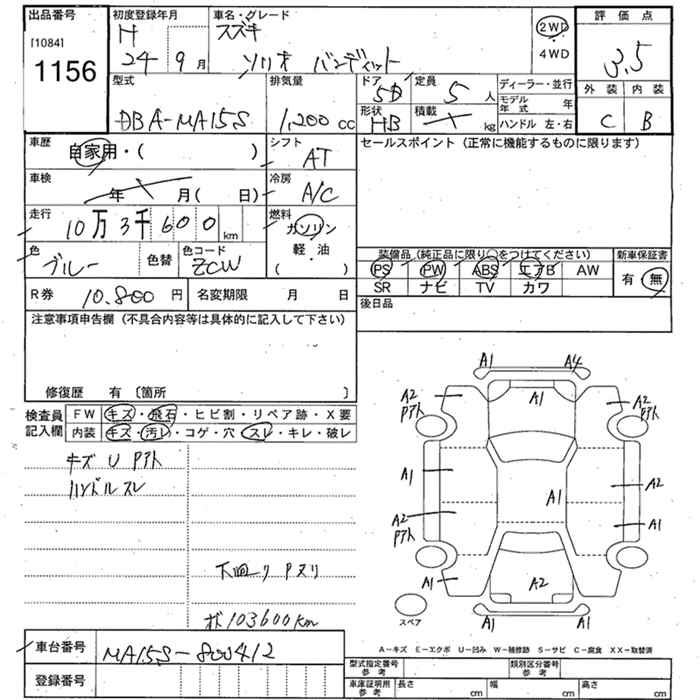 出品番号
[1084]
1156
初度登録年月
H
24 9 月
車名・グレード
スズキ
ソリオ バンディット
2WD
・
4WD
評 価 点
3.5
外 装 内 装
C B
型式
DBA-MA15S
排気量
1,200 cc
ドア
5D
定員
5 人
形状
HB
積載
kg
ディーラー・並行
モデル年式 年
ハンドル 左・右
車歴
自家用・( )
シフト
AT
車検
年 月( 日)
冷房
A/C
走行
10万3千600 km
燃料
ガソリン
軽・油
( )
色
ブルー
色替
色コード
ZCW
R券
10.800 円
名変期限 月 日
セールスポイント (正常に機能するものに限ります)
装備品(純正品に限り○をつけてください)
PS PW ABS エアB AW
SR ナビ TV カワ
新車保証書
有・無
後日品
注意事項申告欄 (不具合内容等は具体的に記入して下さい)
修復歴 有 〔箇所 〕
検査員
記入欄
FW キズ・飛石・ヒビ割・リペア跡・X要
内装 キズ・汚レ・コゲ・穴 スレ・キレ・破レ
キズ U Pアト
ハンドルスレ
下回り Pヌリ
103600km
A1 A4
A2
Pアト
A1
A2
Pアト
A1
A2
A2
Pアト
A1
A1
A1
A2
A1
A1
スペア
A-キズ E-エクボ U-凹み W-補修跡 S-サビ C-腐食 XX-取替済
車台番号
MA15S-800412
登録番号
型式指定番号
参 考
類別区分番号
参 考
車庫証明用
参 考
長さ cm 幅 cm 高さ cm